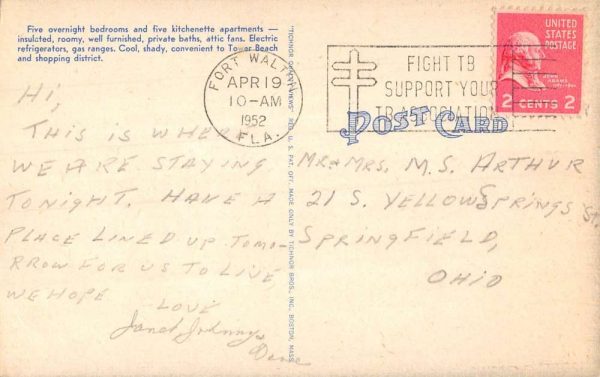 Five overnight bedrooms and five kitchenette apartments —
insulated, roomy, well furnished, private baths, attic fans. Electric
refrigerators, gas ranges. Cool, shady, convenient to Tower Beach
and shopping district.
FORT WALTON
APR 19
10-AM
1952
FLA.
FIGHT TB
SUPPORT YOUR
TB ASSOCIATION
UNITED
STATES
POSTAGE
JOHN
ADAMS
2 CENTS 2
POST CARD
HI,
THIS IS WHERE
WE ARE STAYING
TONIGHT. HAVE A
PLACE LINED UP TOMO-
RROW FOR US TO LIVE,
WE HOPE
LOVE
Janet Johnny
MR & MRS. M. S. ARTHUR
21 S. YELLOW SPRINGS St.
SPRINGFIELD,
OHIO
REG. U. S. PAT. OFF. MADE ONLY BY TICHNOR BROS., INC., BOSTON, MASS.